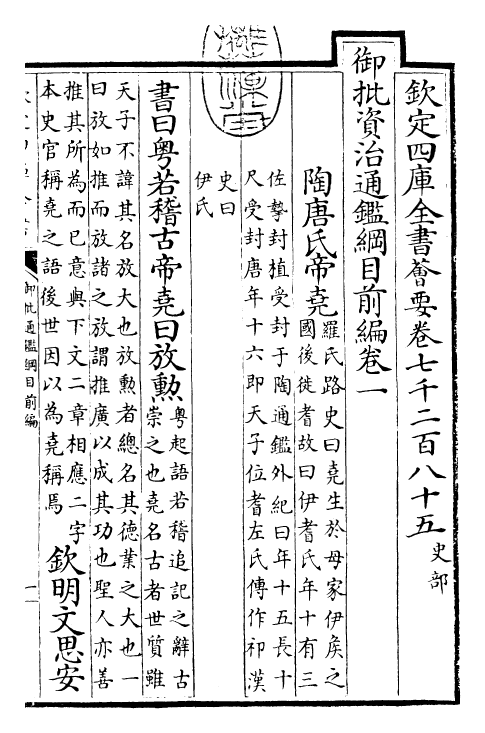 欽定四庫全書薈要卷七千二百八十五 史部
御批資治通鑑綱目前編卷一
陶唐氏帝堯
羅氏路史曰堯生於母家伊矦之
國後徙耆故曰伊耆氏年十有三
佐摯封植受封于陶通鑑外紀曰年十五長十
尺受封唐年十六即天子位耆左氏傳作祁漢
史曰
伊氏
書曰粤若稽古帝堯曰放勲
粤起語若稽追記之辭古
崇之也堯名古者世質雖
天子不諱其名放大也放勲者總名其德業之大也一
曰放如推而放諸之放謂推廣以成其功也聖人亦善
推其所為而已意與下文二章相應二字
本史官稱堯之語後世因以為堯稱焉
欽明文思安
御批通鑑綱目前編
一